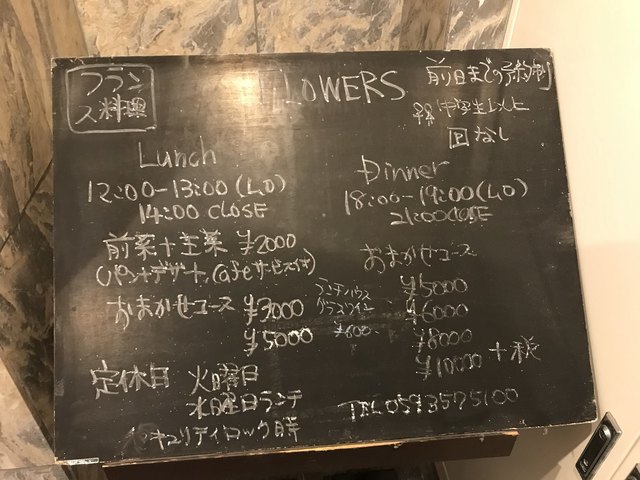 フランス料理
FLOWERS
前日までの予約制
中学生以上
P なし
Lunch
12:00-13:00 (L.O)
14:00 CLOSE
前菜+主菜 ¥2000
(パン+デザート, Cafeサービス付)
おまかせコース ¥3000
¥5000
ランチハウス
グラスワイン
¥600
Dinner
18:00-19:00 (L.O)
21:00 CLOSE
おまかせコース
¥5000
¥6000
¥8000
¥10000 +税
定休日 火曜日
水曜日ランチ
セキュリティロック時
TEL 0593575100